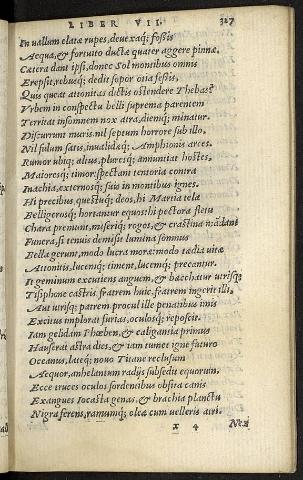 LIBER VII. 327
In uallum elatæ rupes, deuexaq; foßis
Aequa, & fortuito ductæ quater aggere pinnæ.
Cætera dant ipsi, donec Sol montibus omnis
Erepsit, rebusq; dedit sopor otia feßis,
Quis queat attonitas dictis ostendere Thebas?
Vrbem in conspectu belli suprema parentem
Territat insomnem nox atra, diemq; minatur.
Discurrunt muris. nil septum horrore sub illo,
Nil fidum satis, inualidæq; Amphionis arces.
Rumor ubiq; alius, plureisq; annuntiat hostes,
Maioresq; timor: spectant tentoria contra
Inachia, externosq; suis in montibus ignes.
Hi precibus, questuq; deos, hi Martia tela
Belligerosq; hortantur equos: hi pectora fletu
Chara premunt, miseriq; rogos, & crastina mādant
Funera, si tenuis demisit lumina somnus
Bella gerunt, modo lucra moræ: modo tædia uitæ
Attonitis, lucemq; timent, lucemq; precantur.
It geminum excutiens anguem, & bacchatur utrisq;
Tisiphone castris. fratrem huic, fratrem ingerit illi,
Aut utrisq; patrem. procul ille penatibus imis
Excitus implorat furias, oculosq; reposcit.
Iam gelidam Phœben, & caligantia primus
Hauserat astra dies, & iam tumet igne futuro
Oceanus, lateq; nouo Titane reclusum
Aequor, anhelantum radijs subsedit equorum.
Ecce truces oculos sordentibus obsita canis
Exangues Iocasta genas, & brachia planctu
Nigra ferens, ramumq; oleæ cum uelleris atri.
x 4 Nexi